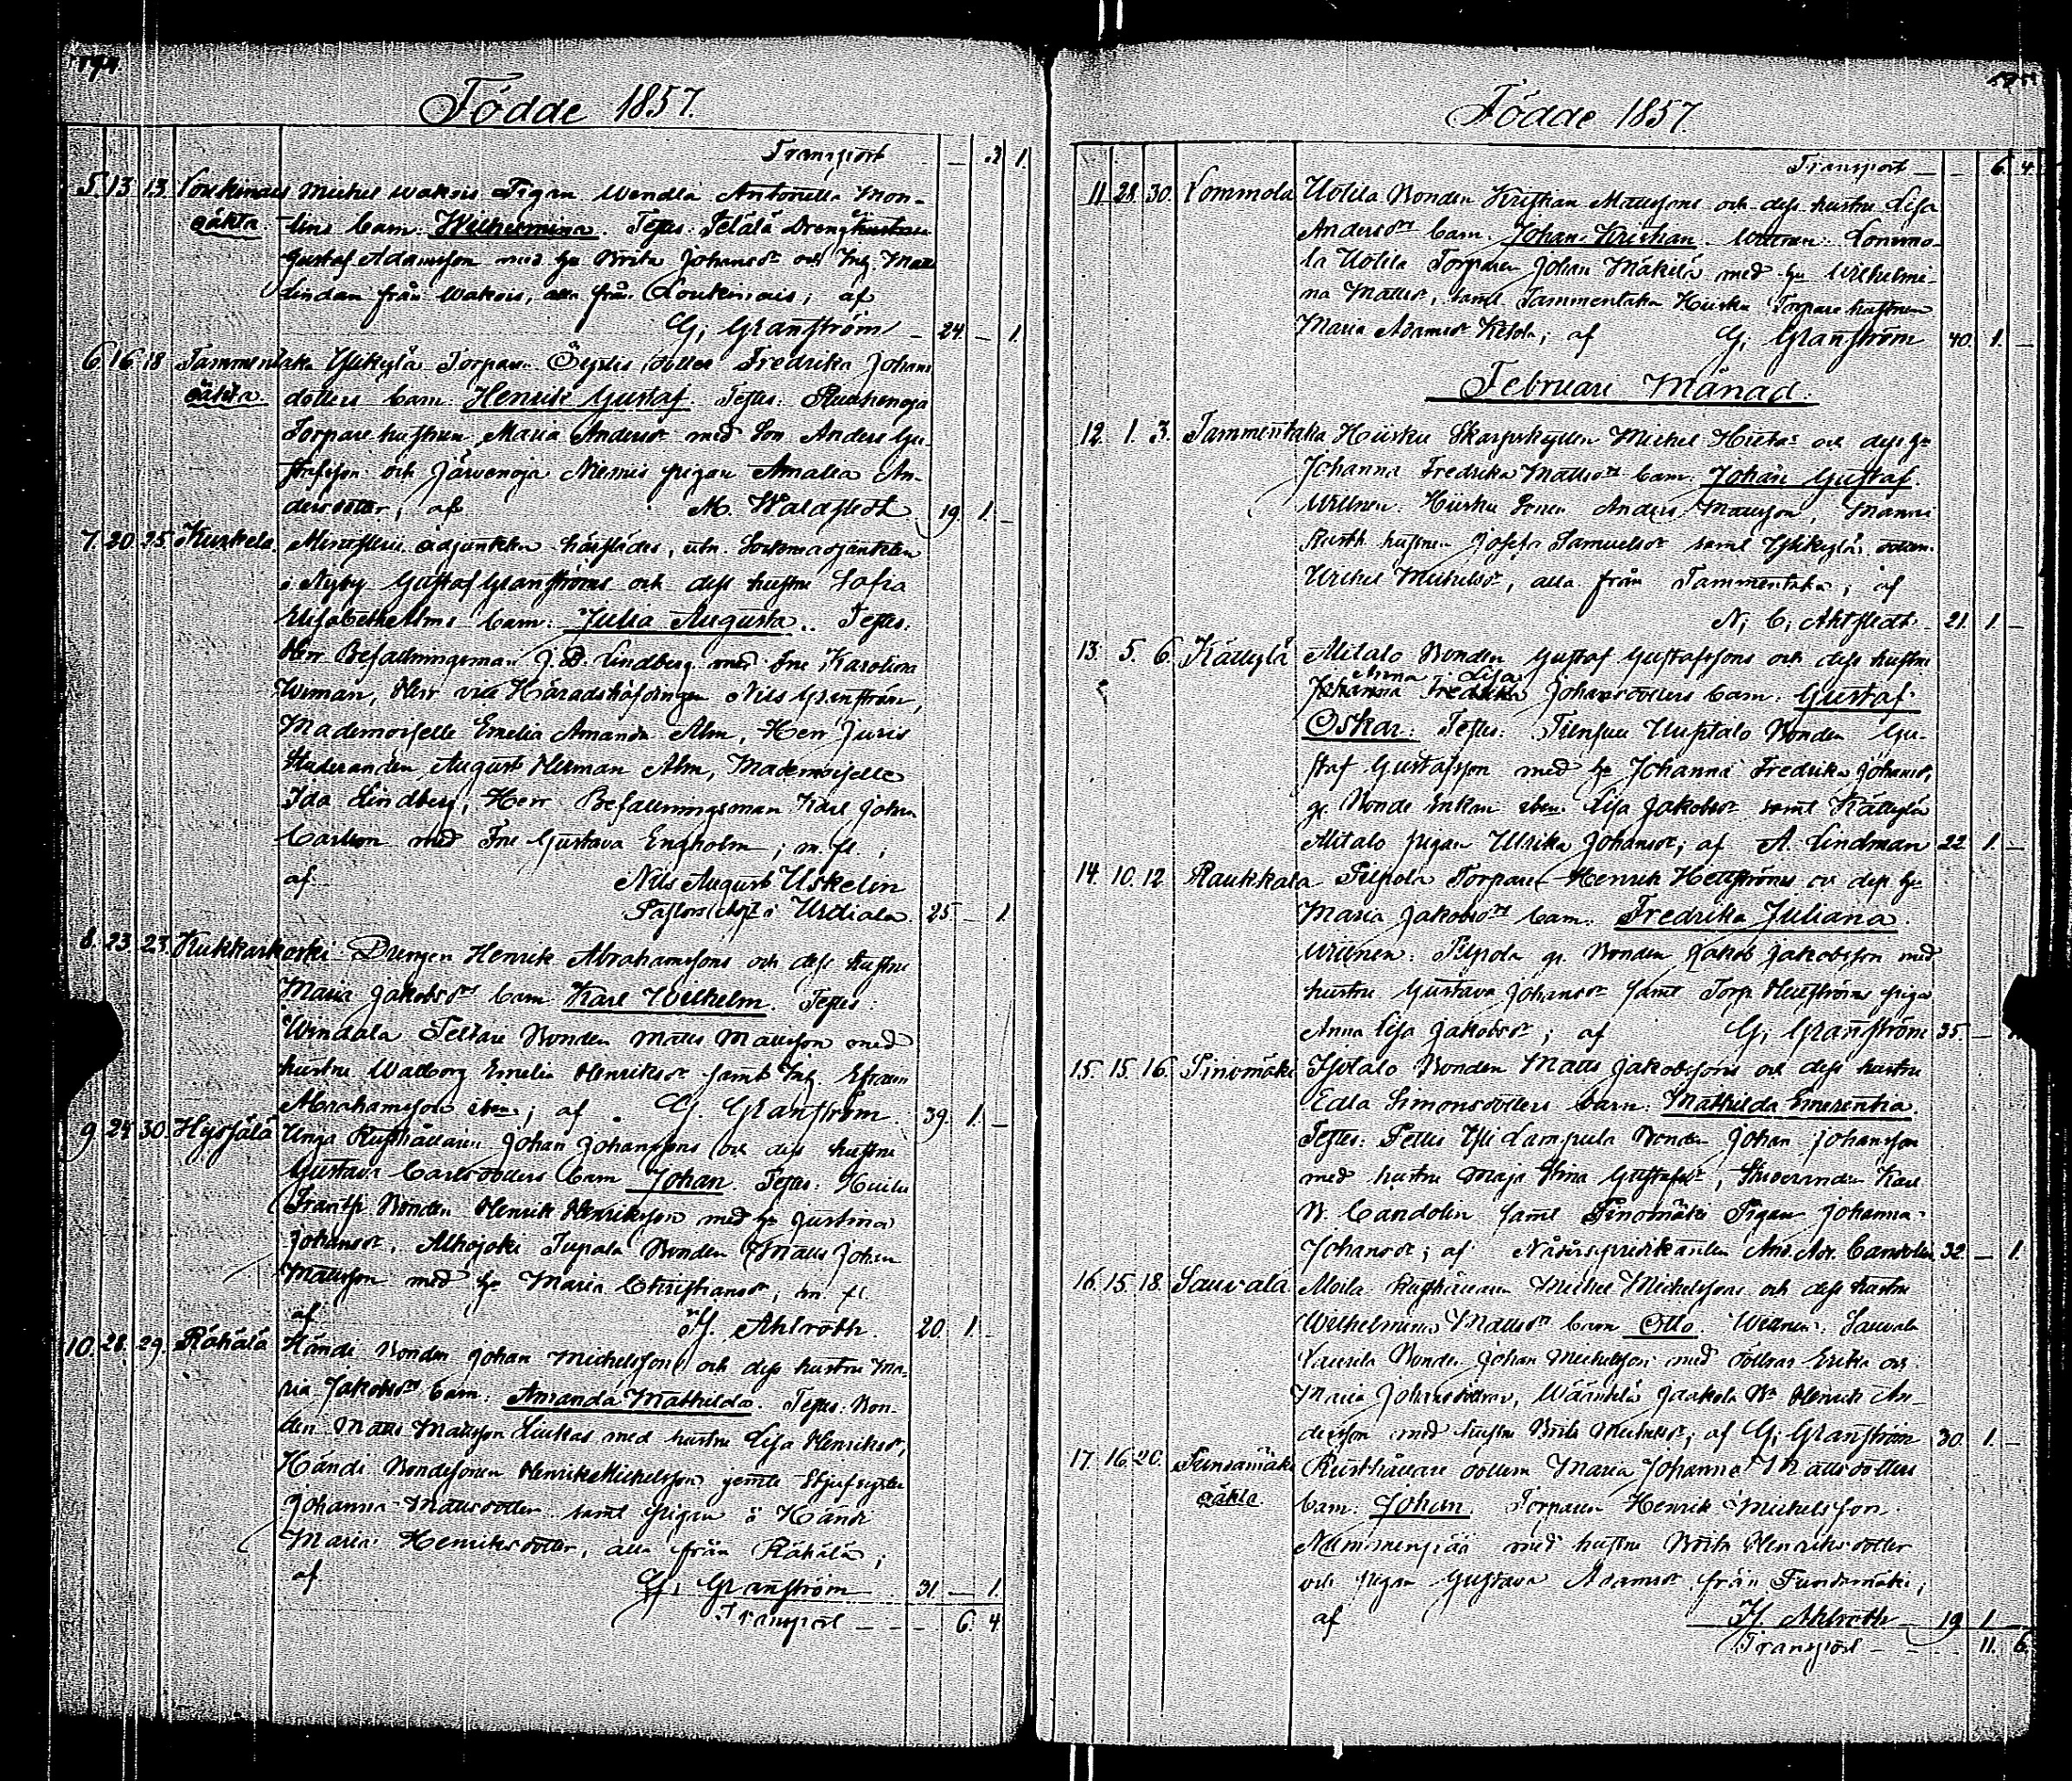 194
Födde 1857.
Transport — 3 1.
5. 13. 13. Loukinais Michel Wakois Pigan Wendla Antonetta Mon-
oäkta. lins barn: Wilhelmina. Testes: Drengen
Gustaf Adamsson med hu Brita Johansdr och Ing. Matts
Lindan från Wakois, alla från Loukinais; af
G. Granström — 24. — 1.
6. 16. 18 Tammentaka Ylikylä Torparen dotter Fredrika Johans
oäkta dotters barn: Henrik Gustaf. Testes:
Torpare hustrun Maria Andersdr med Son Anders Gu-
stafsson och Järvenoja Niemis pigan Amalia An-
dersdotter, af M. Waldstedt 19. 1. —
7. 20. 25. Kuskela. Ministerii adjunkten härstädes, utn. Sockneadjunkten
i Nyby Gustaf Granströms och dess hustru Sofia
Elisabeth Alms barn: Julia Augusta. Testes:
Herr Befallningsman J. D. Lindberg med Fru Karolina
Weman, Herr vice Häradshöfdingen Nils Granström,
Mademoiselle Emelia Amanda Alm, Herr Juris
Studeranden August Herman Alm, Mademoiselle
Ida Lindberg, Herr Befallningsman Karl Johan
Carlson med Fru Gustava Engholm; m. fl.;
af Nils August Uskelin
Pastors adjt i Urdiala. 25. — 1.
8. 23. 23. Kukkarkoski Drengen Henrik Abrahamssons och dess hustru
Maria Jakobsdrs barn Karl Wilhelm. Testes:
Windala Peltari Bonden Matts Mattsson med
hustru Walborg Emelia Henriksdr samt Ing. Efraim
Abrahamsson ibm; af G. Granström. 39. 1. —
9. 24. 30. Hypjälä Unga Rusthållaren Johan Johanssons och dess hustru
Gustava Carlsdotters barn Johan. Testes:
Franssi Bonden Henrik Henriksson med hu Justina
Johansdr, Alhojoki Bonden Matts Johan
Mattsson med hu Maria Christiansdr, m. fl.
af H. Ahlroth. 20. 1. —
10. 28. 29. Rähälä Händi Bonden Johan Michelssons och dess hustru Ma-
ria Jakobsdrs barn: Amanda Mathilda. Testes: Bon-
den Matts Mattsson Liukas med hustru Lisa Henriksdr,
Händi Bondesonen Henrik Michelsson jemte Styfsyster
Johanna Mattsdotter samt Pigan å Händi
Maria Henriksdotter, alla från Rähälä;
af G. Granström 31. — 1.
Transport — — — 6. 4.
Födde 1857.
Transport — — 6. 4.
11. 28. 30. Lommola Uotila Bonden Kristian Mattssons och dess hustru Lisa
Andersdrs barn. Johan Kristian. Wittnen: Lommo-
la Uotila Torparen Johan Mäkilä med hu Wilhelmi-
na Mattsdr, samt Tammentaka Hiisku Torpare hustrun
Maria Adamsdr Ketola; af G. Granström 40. 1. —
Februari Månad.
12. 1. 3. Tammentaka Hiisku Skarpskytten Michel Hiitas och dess hu
Johanna Fredrika Mattsdrs barn: Johan Gustaf.
Wittnen. Hiisku Sonen Anders Mattsson, Manni
Rusth. hustrun Josefa Samuelsdr samt Ylikylä dottren
Michelsdr, alla från Tammentaka; af
N. C. Ahlstedt. 21. 1. —
13. 5. 6. Kättylä Alitalo Bonden Gustaf Gustafssons och dess hustru
Anna Lisa
Johanna Fredrika Johansdotters barn: Gustaf
Oskar. Testes: Bonden Gu-
staf Gustafsson med hu Johanna Fredrika Johansdr,
g. Bonde Enkan ibm. Lisa Jakobsdr samt Kättylä
Alitalo pigan Ulrika Johansdr; af A. Lindman 22. 1. —
14. 10. 12. Raukkala Pilpola Torparen Henrik Hellströms och dess hu
Maria Jakobsdrs barn: Fredrika Juliana.
Wittnen: Pilpola g. Bonden Jakob Jakobsson med
hustru Gustava Johansdr samt Torp. Hellströms piga
Anna Lisa Jakobsdr; af G. Granström 35. —
15. 15. 16. Pinomäki Isotalo Bonden Matts Jakobssons och dess hustru
Edla Simonsdotters barn: Mathilda Emerentia.
Testes: Pettis Yli Lampula Bonden Johan Johansson
med hustru Maja Stina Gustafsdr, Studeranden Karl
W. Candolin samt Pinomäki Pigan Johanna
Johansdr; af Nådårspredikanten And. Ad. Candolin. 32. — 1.
16. 15. 18. Sauvala Moila Rusthållaren Michel Michelssons och dess hustru
Wilhelmina Mattsdrs barn Otto. Wittnen: Sauvala
Laurila Bonden Johan Michelsson med döttrar Erika och
Maria Johansdöttrar, Wääntelä Jaakola Bn Henrik An-
dersson med hustru Brita Michelsdr, af G. Granström 30. 1. —
17. 16. 20. Rusthållare dottern Maria Johanna Mattsdotters
oäkta. barn: Johan. Torparen Henrik Michelsson
med hustru Brita Henriksdotter
och Pigan Gustava Adamsdr från;
af H. Ahlroth 19 1. —
Transport — 11. 6.